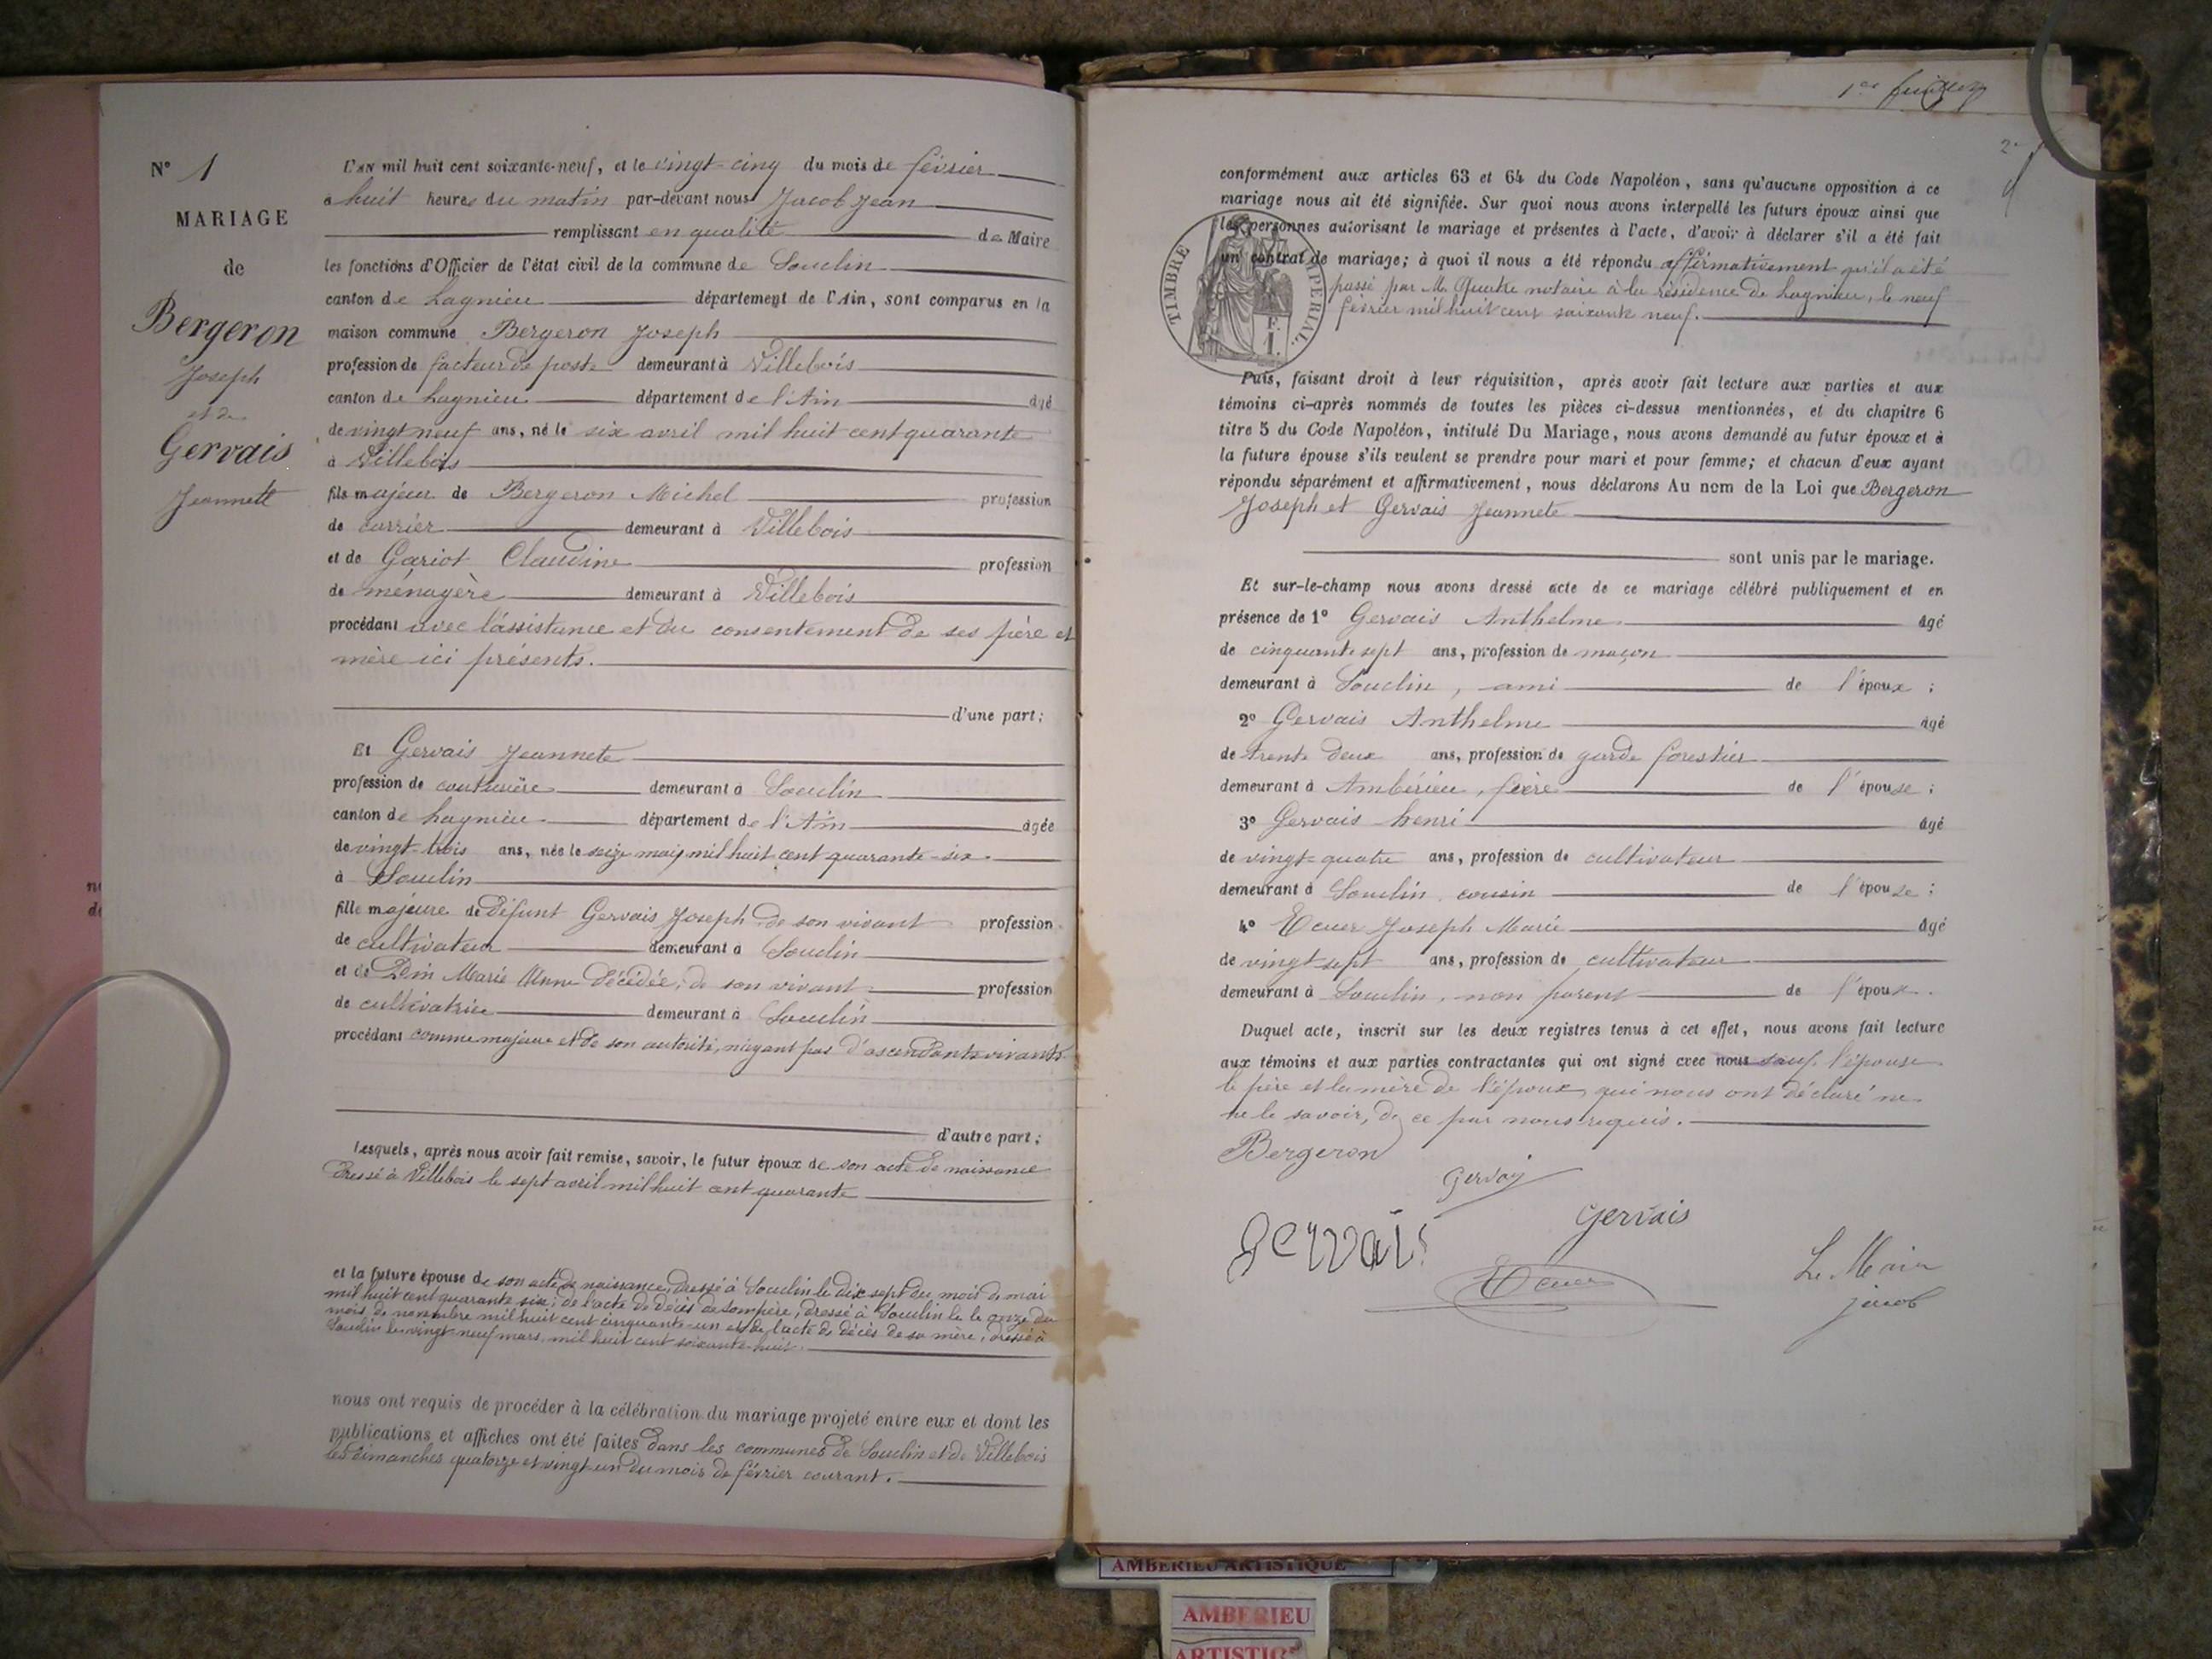 N° 1
MARIAGE
de
Bergeron
Joseph
et de
Gervais
Jeannette
L'AN mil huit cent soixante-neuf, et le vingt-cinq du mois de février
à huit heures du matin par-devant nous Jacob Jean
remplissant en qualité de Maire
les fonctions d'Officier de l'état civil de la commune de Souclin
canton de Lagnieu département de l'Ain, sont comparus en la
maison commune Bergeron Joseph
profession de facteur de poste demeurant à Villebois
canton de Lagnieu département de l'Ain âgé
de vingt neuf ans, né le six avril mil huit cent quarante
à Villebois
fils majeur de Bergeron Michel profession
de carrier demeurant à Villebois
et de Gariot Claudine profession
de ménagère demeurant à Villebois
procédant avec l'assistance et du consentement de ses père et
mère ici présents.
d'une part;
Et Gervais Jeannete
profession de couturière demeurant à Souclin
canton de Lagnieu département de l'Ain âgée
de vingt-trois ans, née le seize mai mil huit cent quarante-six
à Souclin
fille majeure de défunt Gervais Joseph de son vivant profession
de cultivateur demeurant à Souclin
et de Marie Anne décédée, de son vivant profession
de cultivatrice demeurant à Souclin
procédant comme majeure et de son autorité, n'ayant pas d'ascendants vivants.
d'autre part;
Lesquels, après nous avoir fait remise, savoir, le futur époux de son acte de naissance
dressé à Villebois le sept avril mil huit cent quarante
et la future épouse de son acte de naissance, dressé à Souclin le dix sept du mois de mai
mil huit cent quarante six; de l'acte de décès de son père, dressé à Souclin le le onze du
mois de novembre mil huit cent cinquante-un et de l'acte de décès de sa mère, dressé à
Souclin le vingt-neuf mars, mil huit cent soixante-huit.
nous ont requis de procéder à la célébration du mariage projeté entre eux et dont les
publications et affiches ont été faites dans les communes de Souclin et de Villebois
les dimanches quatorze et vingt-un du mois de février courant.
2e
conformément aux articles 63 et 64 du Code Napoléon, sans qu'aucune opposition à ce
mariage nous ait été signifiée. Sur quoi nous avons interpellé les futurs époux ainsi que
les personnes autorisant le mariage et présentes à l'acte, d'avoir à déclarer s'il a été fait
un contrat de mariage; à quoi il nous a été répondu affirmativement qu'il a été
passé par M. Quatre notaire à la résidence de Lagnieu, le neuf
février mil huit cent soixante neuf.
TIMBRE IMPÉRIAL.
Puis, faisant droit à leur réquisition, après avoir fait lecture aux parties et aux
témoins ci-après nommés de toutes les pièces ci-dessus mentionnées, et du chapitre 6
titre 5 du Code Napoléon, intitulé Du Mariage, nous avons demandé au futur époux et à
la future épouse s'ils veulent se prendre pour mari et pour femme; et chacun d'eux ayant
répondu séparément et affirmativement, nous déclarons Au nom de la Loi que Bergeron
Joseph et Gervais Jeannete
sont unis par le mariage.
Et sur-le-champ nous avons dressé acte de ce mariage célébré publiquement et en
présence de 1° Gervais Anthelme âgé
de cinquante sept ans, profession de maçon
demeurant à Souclin, ami de l'époux;
2° Gervais Anthelme âgé
de trente deux ans, profession de garde forestier
demeurant à Ambérieu, frère de l'épouse;
3° Gervais henri âgé
de vingt-quatre ans, profession de cultivateur
demeurant à Souclin cousin de l'épouse;
4° Joseph Marie âgé
de vingt sept ans, profession de cultivateur
demeurant à Souclin, non parent de l'époux.
Duquel acte, inscrit sur les deux registres tenus à cet effet, nous avons fait lecture
aux témoins et aux parties contractantes qui ont signé avec nous sauf l'épouse
le père et la mère de l'époux qui nous ont déclaré ne
ne le savoir, de ce par nous requis.
Bergeron
Gervais
Gervais
Gervais
Le Maire
Jacob
AMBERIEU ARTISTIQUE
AMBERIEU
ARTISTIQ